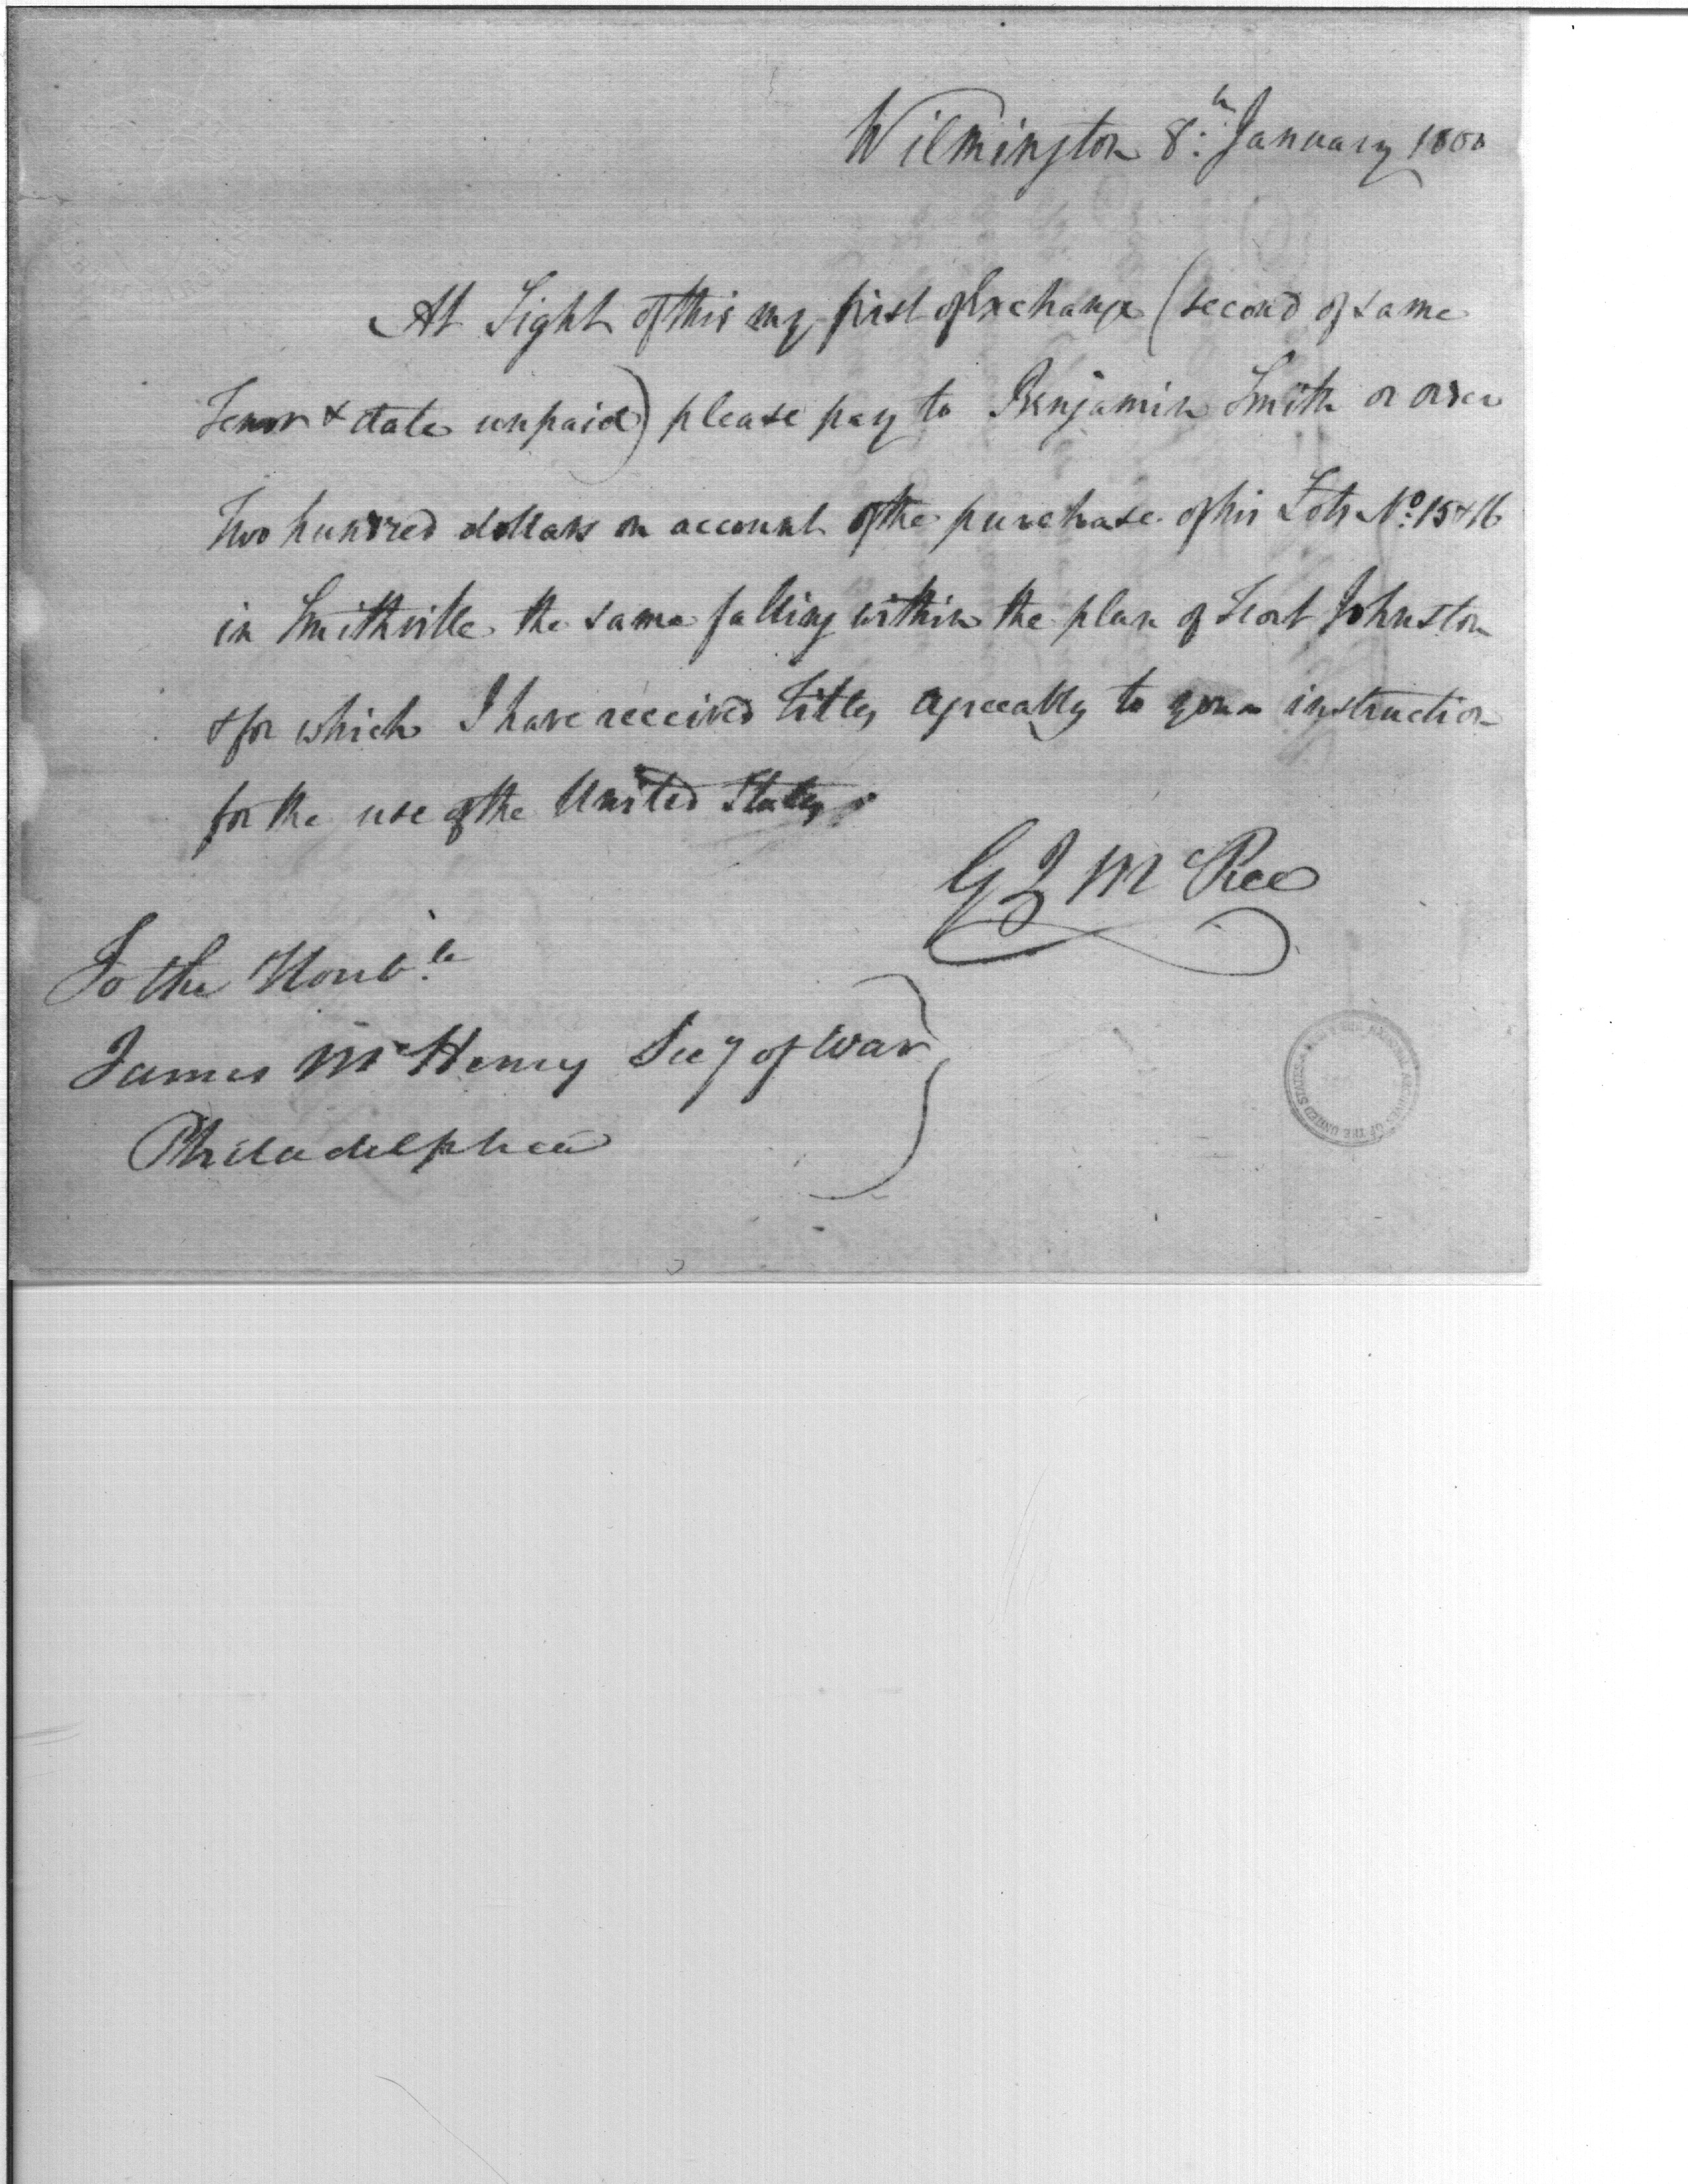 Wilmington 8.h January 1800
At Sight of this my first of Exchange (second of same
Tenor & date unpaid) please pay to Benjamin Smith or order
Two hundred dollars on account of the purchase of his Lots No. 15 & 16
in Smithville the same falling within the plan of Fort Johnston
& for which I have received titles, agreeably to your instruction
for the use of the United States.
G J McRee
To the Honb.le
James McHenry Secy of War
Philadelphia
OF THE UNITED STATES